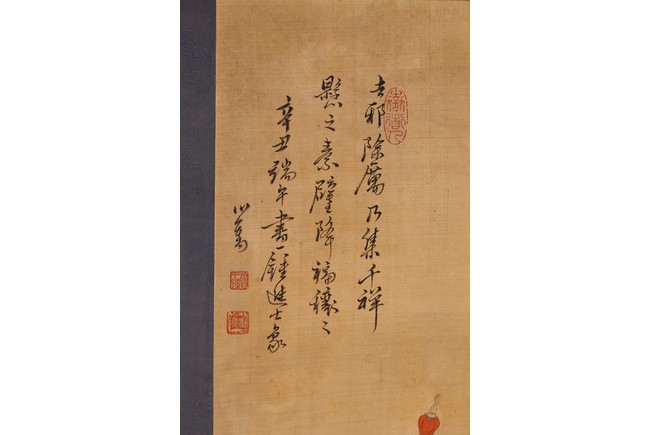 去邪除厲乃集千祥
懸之素壁降福穰々
辛丑端午書鍾進士象
心畬